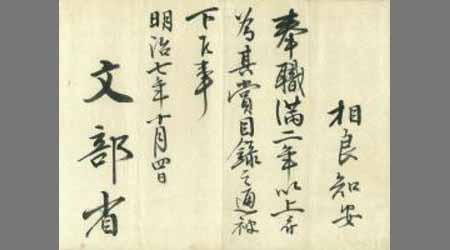 相良知安
奉職満二年以上
為其賞目録之通被
下候事
明治七年十月四日
文部省